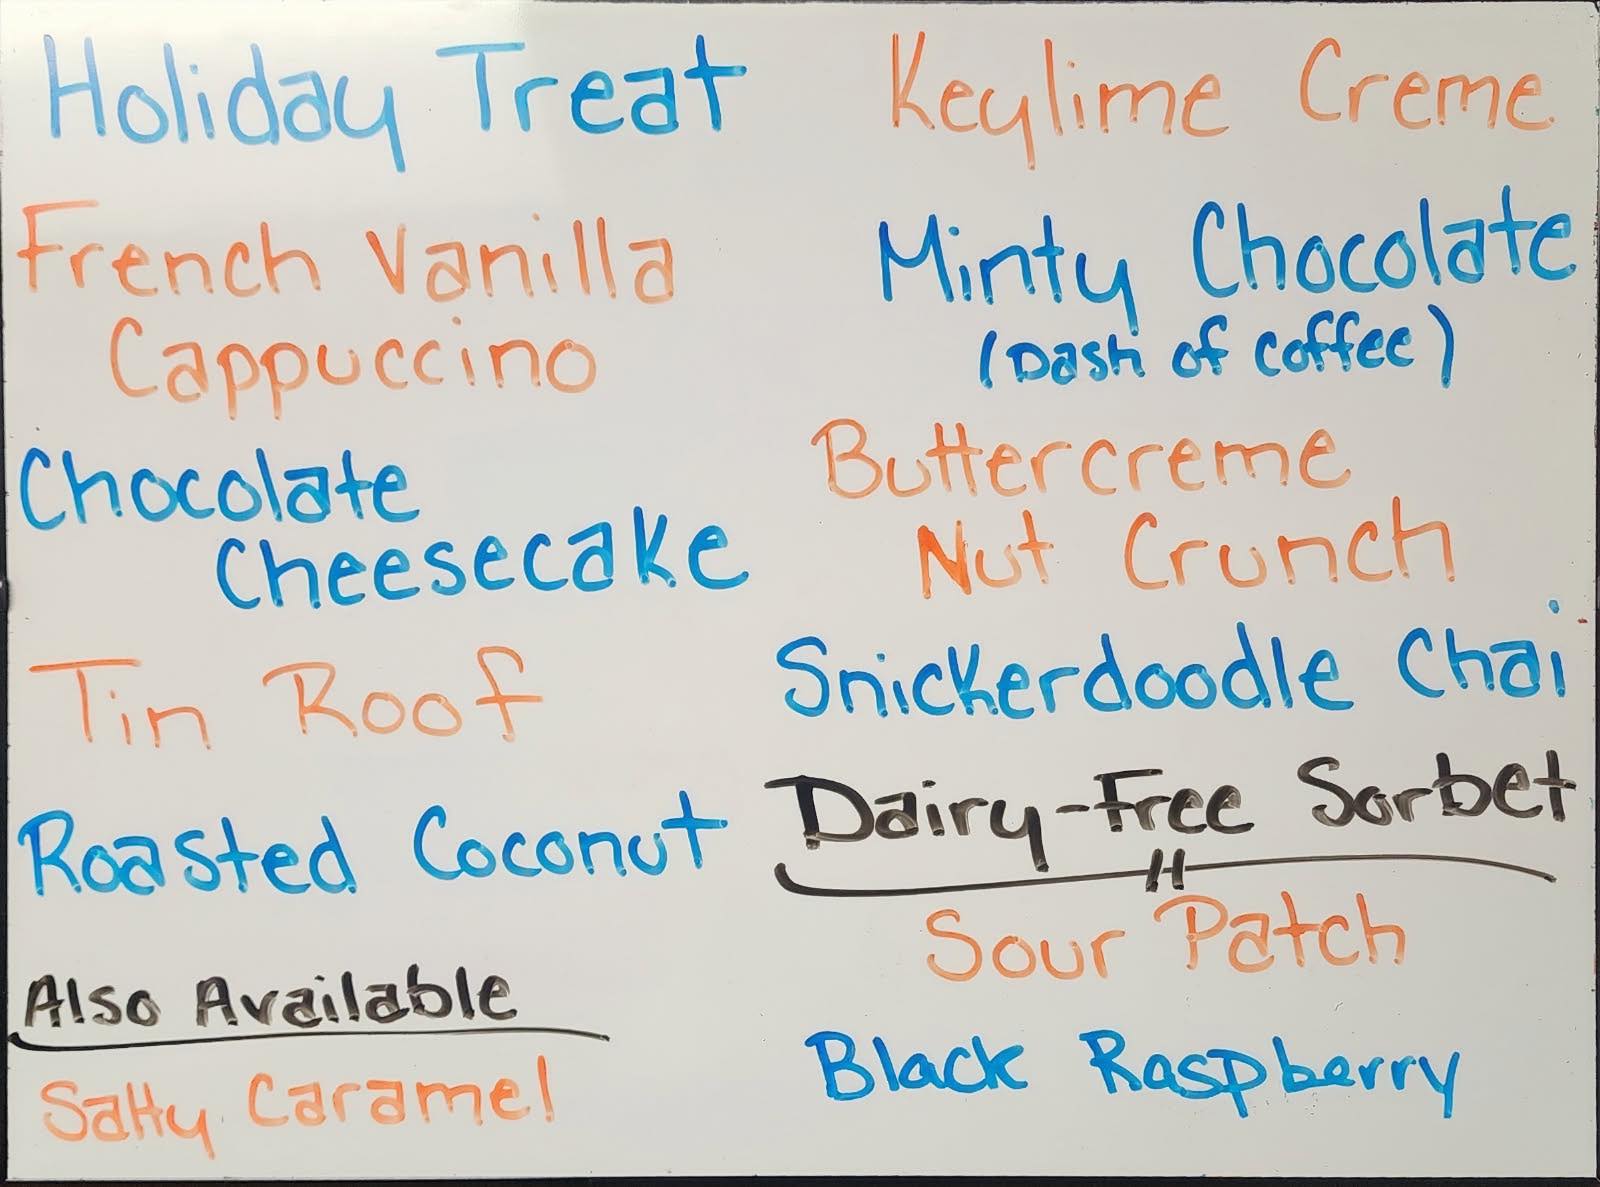 Holiday Treat
French Vanilla
Cappuccino
Chocolate
Cheesecake
Tin Roof
Roasted Coconut
Also Available
Salty Caramel
Keylime Creme
Minty Chocolate
(Dash of coffee)
Buttercreme
Nut Crunch
Snickerdoodle Chai
Dairy-Free Sorbet
Sour Patch
Black Raspberry